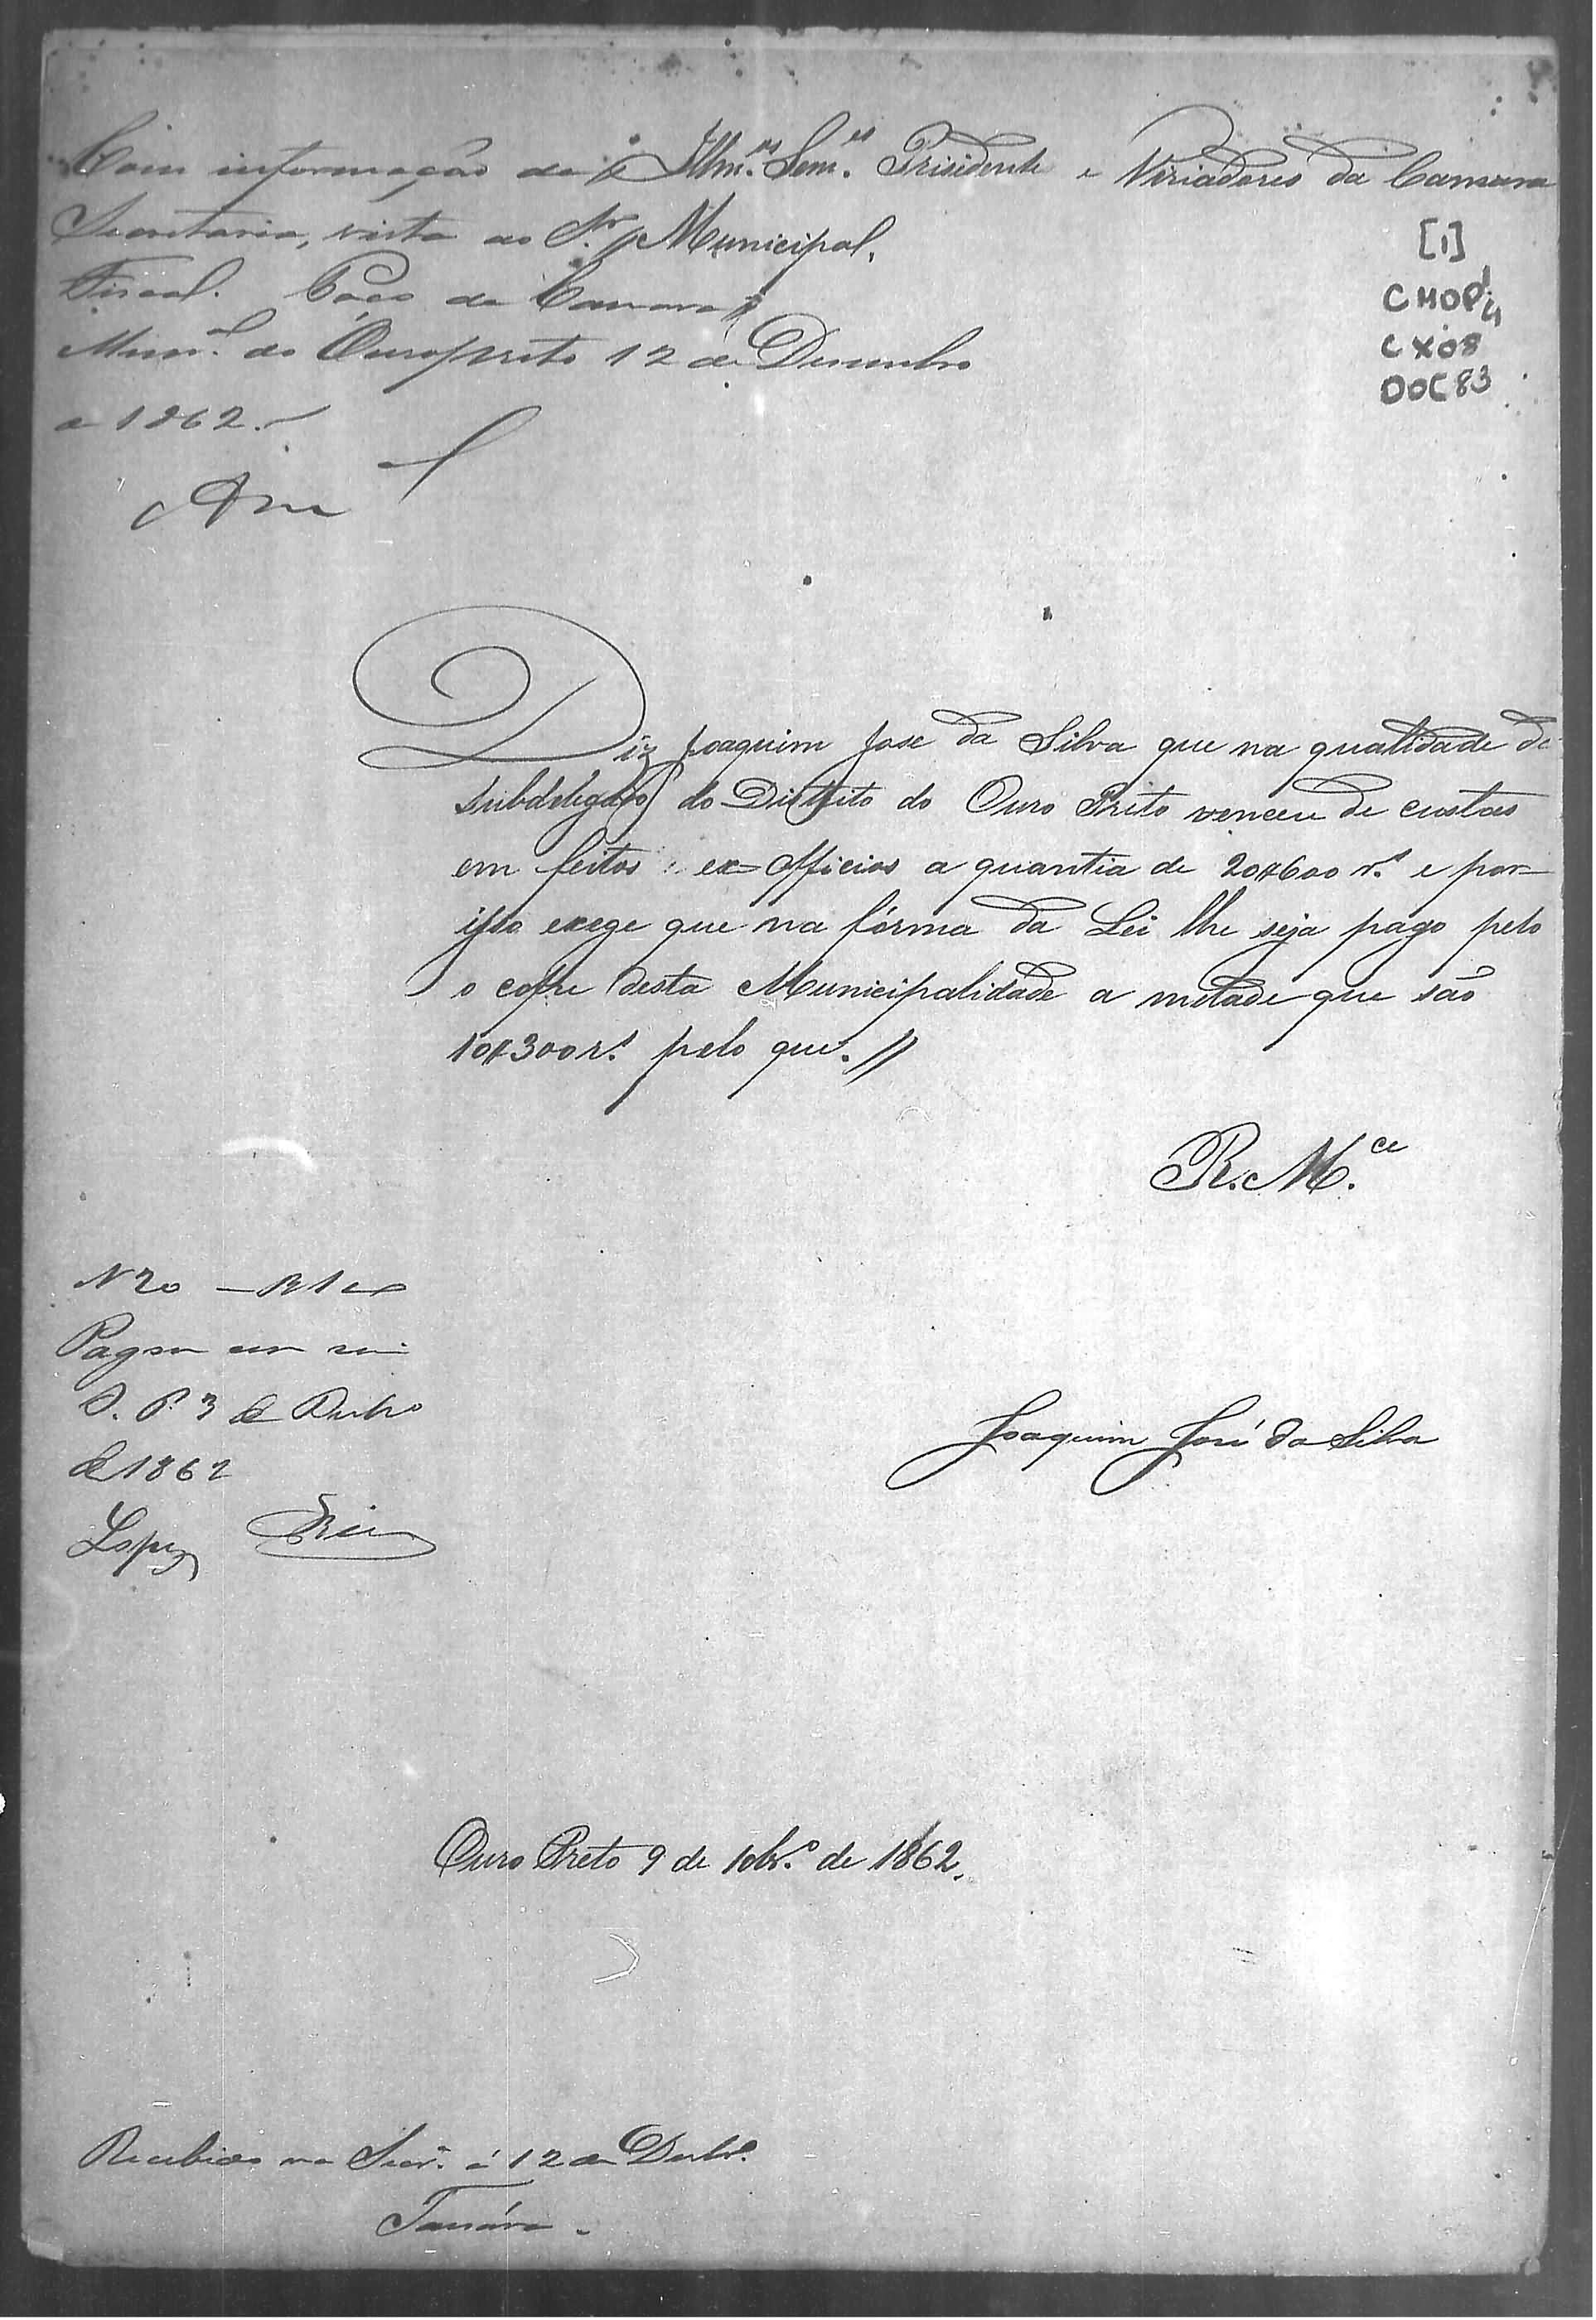 Illm.os Senr.es Prisidente e Viriadores da Camara
Municipal.
Com informação da
Secretaria, vista ao Sr.
Fiscal. Paço da Camara
Mun.al do Ouropreto 12 de Dezembro
de 1862.
[1]
CMOP
CX08
DOC83
Diz Joaquim Jose da Silva que na qualidade de
subdelegado do Distrito do Ouro Preto venceu de custas
em feitos ex-officios a quantia de 20$600 r.s e por
isso exege que na fórma da Lei lhe seja pago pelo
o cofre desta Municipalidade a metade que são
10$300 r.s pelo que. //
R. M.ce
N 20
Pagou
O. P. 3 de
de 1862
Lopes
Joaquim José da Silva
Ouro Preto 9 de 10br.o de 1862.
Recebido na Secr.a á 12 de Dezbr.o